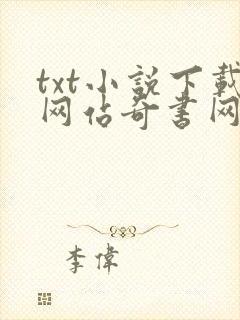 txt小説下載
网站奇書网
李偉